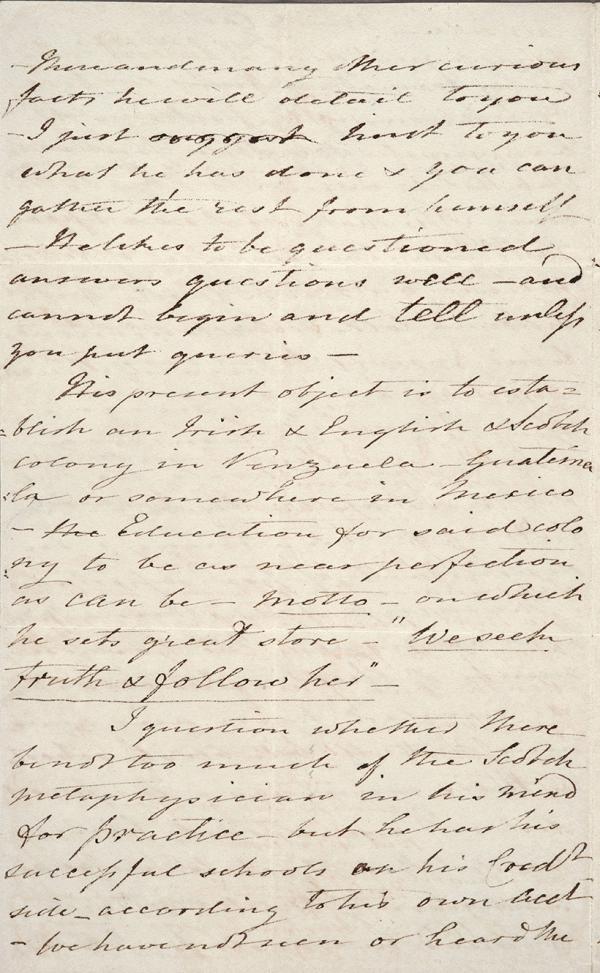 - These and many other curious
facts he will detail to you
- I just suggest hint to you
what he has done & you can
gather the rest from himself
- He likes to be questioned
answers questions well - and
cannot begin and tell unless
you put queries -
His present object is to esta=
=blish an Irish & English & Scotch
colony in Venzuela - Guatima
:la or somewhere in Mexico
- the Education for said colo
ny to be as near perfection
as can be - Motto - on which
he sets great store - "We seek
truth & follow her" -
I question whether there
be not too much of the Scotch
metaphysician in his mind
for practice - but he has his
successful schools on his Credt
side - according to his own acct
- We have not seen or heard the